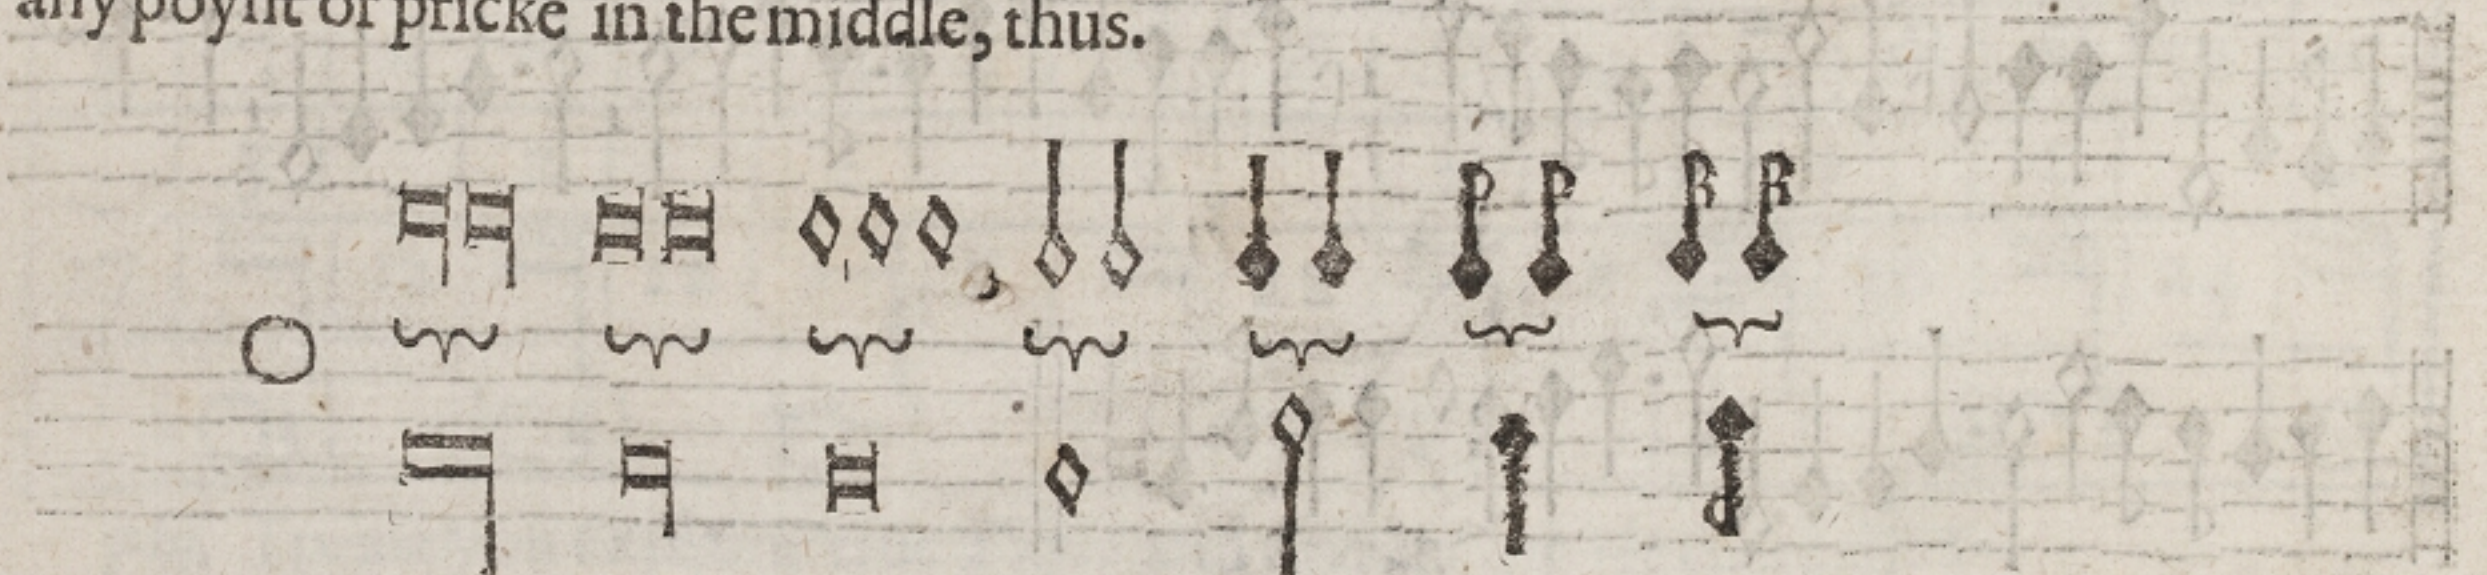 any poynt or pricke in the middle, thus.